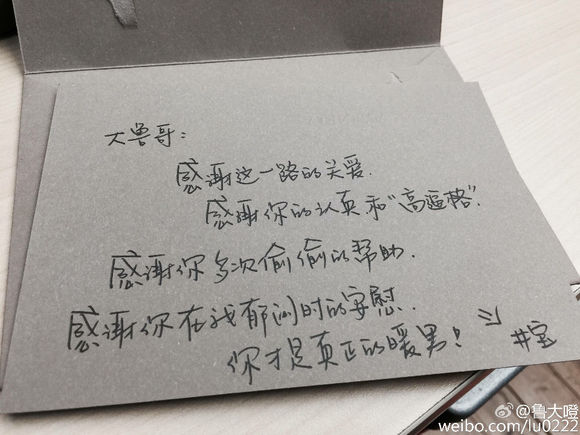 大兽哥：
感谢这一路的关爱.
感谢你的认真和“高逼格”.
感谢你多次偷偷的帮助.
感谢你在我郁闷时的安慰.
你才是真正的暖男！
井宝
@鲁大噔
weibo.com/lu0222